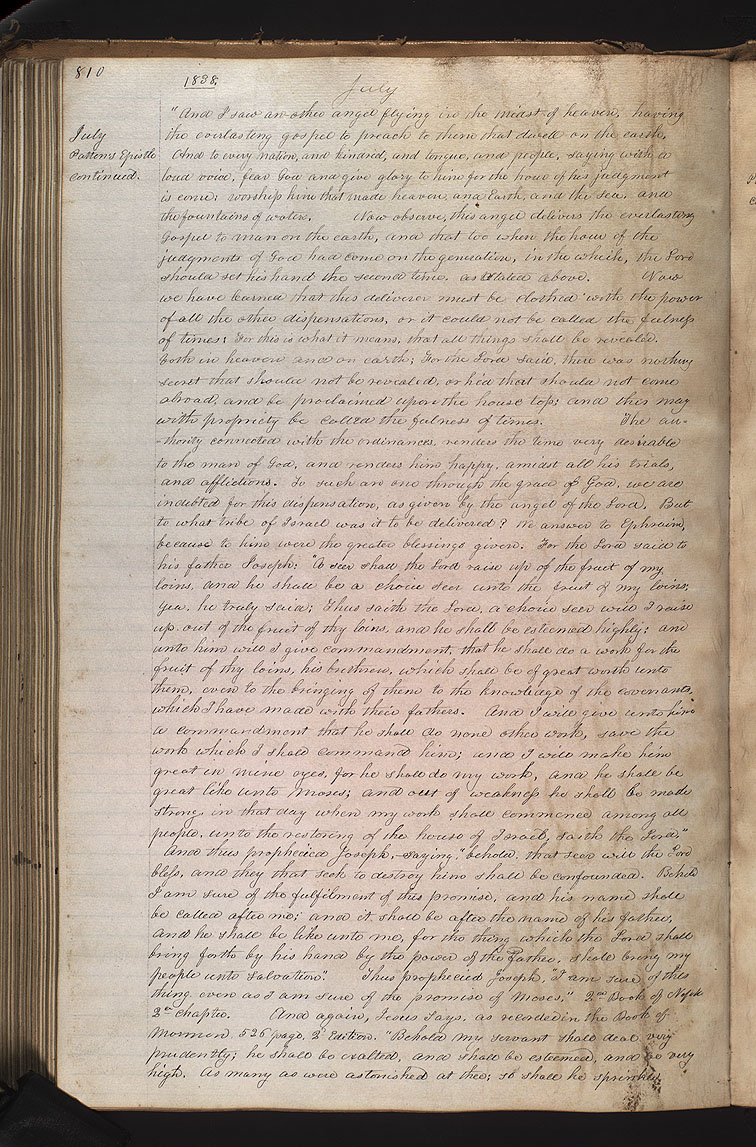 810
1838.
July
July
Patten's Epistle
continued.
"And I saw another angel flying in the midst of heaven, having
the everlasting gospel to preach to them that dwell on the earth.
And to every nation, and kindred, and tongue, and people, saying with a
loud voice, fear God and give glory to him for the hour of his judgment
is come: worship him that made heaven, and Earth, and the sea, and
the fountains of water. Now observe, this angel delivers the everlasting
Gospel to man on the earth, and that too when the hour of the
judgments of God had come on the generation, in the which, the Lord
should set his hand the second time, as stated above. Now
we have learned that this deliverer must be clothed with the power
of all the other dispensations, or it could not be called the fulness
of times: For this is what it means, that all things shall be revealed.
both in heaven and on earth; For the Lord said, there was nothing
secret that should not be revealed, or hid that should not come
abroad, and be proclaimed upon the house top: and this may
with propriety be called the fulness of times. The au-
-thority connected with the ordinances, renders the time very desirable
to the man of God, and renders him happy, amidst all his trials,
and afflictions. To such an one through the grace of God, we are
indebted for this dispensation, as given by the angel of the Lord. But
to what tribe of Israel was it to be delivered? We answer to Ephraim,
because to him were the greater blessings given. For the Lord said to
his father Joseph: "A seer shall the Lord raise up of the fruit of my
loins, and he shall be a choice seer unto the fruit of my loins;
Yea, he truly said; Thus saith the Lord, a choice seer will I raise
up out of the fruit of thy loins, and he shall be esteemed highly; and
unto him will I give commandment, that he shall do a work for the
fruit of thy loins, his brethren, which shall be of great worth unto
them, even to the bringing of them to the knowledge of the covenants,
which I have made with their fathers. And I will give unto him
a commandment that he shall do none other work, save the
work which I shall command him; and I will make him
great in mine eyes, for he shall do my work, and he shall be
great like unto Moses; and out of weakness he shall be made
strong, in that day when my work shall commence among all
people, unto the restoring of the house of Israel, saith the Lord."
And thus prophecied Joseph, saying, "behold, that seer will the Lord
bless, and they that seek to destroy him shall be confounded. Behold
I am sure of the fulfilment of this promise, and his name shall
be called after me; and it shall be after the name of his father;
And he shall be like unto me, for the thing which the Lord shall
bring forth by his hand by the power of the Father, shall bring my
people unto salvation". Thus prophecied Joseph, "I am sure of this
thing, even as I am sure of the promise of Moses;" 2nd Book of Nephi
2nd chapter. And again, Jesus says, as recorded in the Book of
Mormon 526 page, 2d Edition. "Behold my servant shall deal very
prudently; he shall be exalted, and shall be esteemed, and be very
high. As many as were astonished at thee; so shall he sprinkle